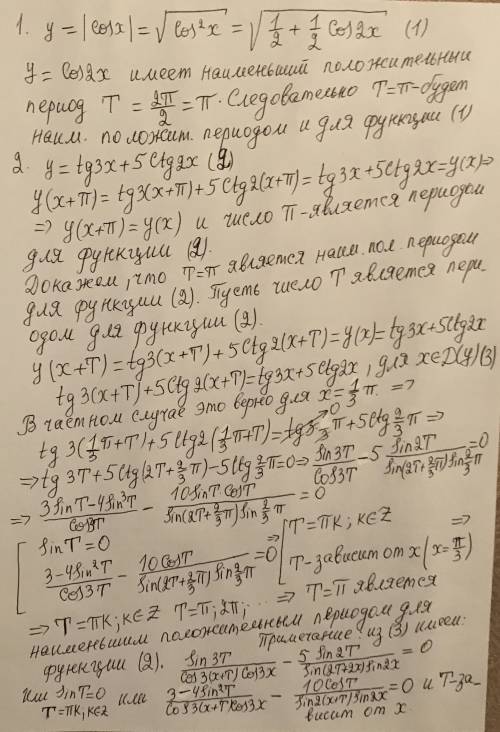 1. y = |cosx| = √cos²x = √1/2 + 1/2 cos2x (1)
y = cos2x имеет наименьший положительный
период T = 2π/2 = π. Следовательно T=π-будет
наим. положит. периодом и для функции (1)
2. y = tg3x + 5ctg2x (2)
y(x+π) = tg3(x+π) + 5ctg2(x+π) = tg3x + 5ctg2x = y(x) ⇒
⇒ y(x+π) = y(x) и число π-является периодом
для функции (2).
Докажем, что T=π является наим. пол. периодом
для функции (2). Пусть число T является пери-
одом для функции (2).
y(x+T) = tg3(x+T) + 5ctg2(x+T) = y(x) = tg3x + 5ctg2x
tg3(x+T) + 5ctg2(x+T) = tg3x + 5ctg2x, для x∈D(y) (3)
В частном случае это верно для x = 1/3 π. ⇒
tg 3(1/3 π+T) + 5ctg2(1/3 π+T) = tg3·π/3 0 + 5ctg 2/3 π ⇒
⇒ tg 3T + 5ctg(2T + 2/3 π) - 5ctg 2/3 π = 0 ⇒ sin3T/cos3T - 5 sin2T/sin(2T+2/3 π)sin 2/3 π = 0
⇒ 3sinT - 4sin³T/cos3T - 10sinT cosT/sin(2T + 2/3 π)sin 2/3 π = 0
[ sinT = 0 ⇒ [ T = πk; k∈Z ⇒
3-4sin²T/cos3T - 10cosT/sin(2T+2/3 π)sin 2/3 π = 0 T-зависит от x (x = π/3)
⇒ T = πk; k∈Z T = π; 2π; ... ⇒ T = π является
наименьшим положительным периодом для
функции (2). Примечание: из (3) имеем:
sin3T/cos3(x+T)cos3x - 5sin2T/sin(2T+2x)sin2x = 0
или sinT=0 или 3-4sin²T/cos3(x+T)cos3x - 10cosT/sin2(x+T)sin2x = 0 и T-за-
T=πk, k∈Z висит от x